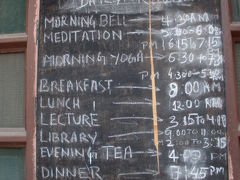 MORNING BELL → 4:30AM
MEDITATION → 5:00-6:0
6:15 TO 7:15
MORNING YOGA → 6:30 TO 7:3
PM 4:300-5:
BREAKFAST → 8.00 AM
LUNCH → 12.00
LECTURE → 3.15 TO 4:0
LIBRARY
2:00 TO 3:15
EVENING TEA → 4:00 PM
DINNER → 7:45 PM